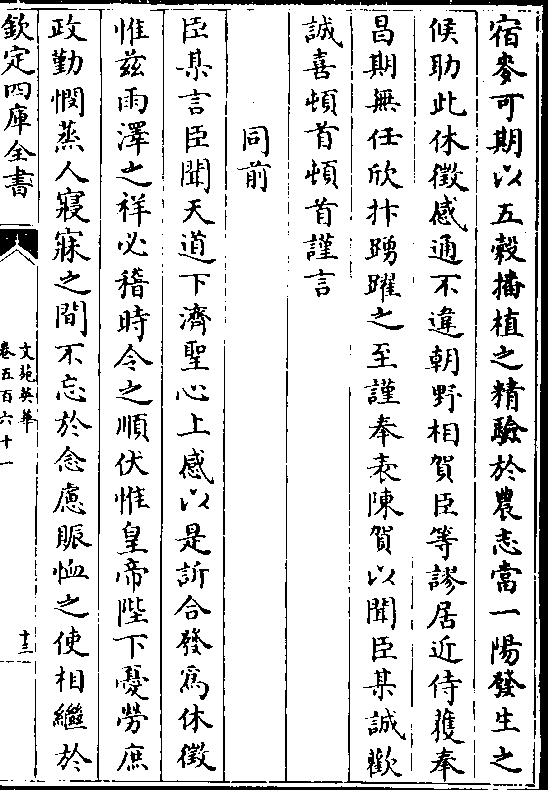 宿麥可期以五穀播植之精驗於農志當一陽發生之
候助此休徵感通不違朝野相賀臣等謬居近侍獲奉
昌期無任欣抃踴躍之至謹奉表陳賀以聞臣某誠歡
誠喜頓首頓首謹言
同前
臣某言臣聞天道下濟聖心上感以是訢合發為休徵
惟兹雨澤之祥必稽時令之順伏惟皇帝陛下憂勞庶
政勤憫蒸人寢寐之間不忘於念慮賑恤之使相繼於
欽定四庫全書
文苑英華
卷五百六十一
十三